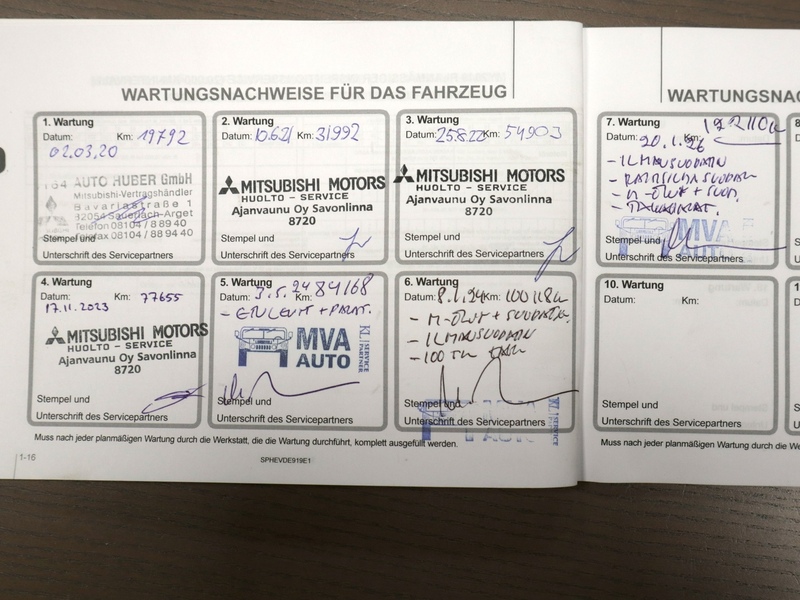 WARTUNGSNACHWEISE FÜR DAS FAHRZEUG
1. Wartung
Datum: Km: 19792
02.03.20
AUTO HUBER GmbH
Mitsubishi-Vertragshändler
Bavariastraße 1
82054 Sauerlach-Arget
Telefon 08104 / 8 89 40
Telefax 08104 / 88 94 40
Stempel und
Unterschrift des Servicepartners
2. Wartung
Datum: Km: 31992
MITSUBISHI MOTORS
HUOLTO - SERVICE
Ajanvaunu Oy Savonlinna
8720
Stempel und
Unterschrift des Servicepartners
3. Wartung
Datum: 25.8.22 Km: 54903
MITSUBISHI MOTORS
HUOLTO - SERVICE
Ajanvaunu Oy Savonlinna
8720
Stempel und
Unterschrift des Servicepartners
4. Wartung
Datum: Km: 77655
17.11.2023
MITSUBISHI MOTORS
HUOLTO - SERVICE
Ajanvaunu Oy Savonlinna
8720
Stempel und
Unterschrift des Servicepartners
5. Wartung
Datum: 3.5.24 84168
MVA
AUTO
KL SERVICE
PARTNER
Stempel und
Unterschrift des Servicepartners
6. Wartung
Datum: Km:
- M-ÖLJY + SUODATIN
- ILMANSUODATIN
- 100 TKM
Stempel und
Unterschrift des Servicepartners
Muss nach jeder planmäßigen Wartung durch die Werkstatt, die die Wartung durchführt, komplett ausgefüllt werden.
1-16
SPHEVDE919E1
WARTUNGSNAC
7. Wartung
Datum: 20.1.26 Km:
- ILMANSUODATIN
- RAITISILMASUODATIN
- M-ÖLJY + SUOD.
MVA
Stempel und
Unterschrift des Servicepartners
10. Wartung
Datum: Km:
Stempel und
Unterschrift des Servicepartners
Muss nach jeder planmäßigen Wartung durch die We